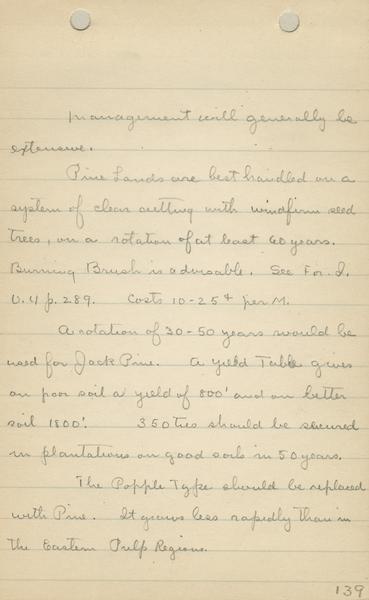 management will generally be
extensive.
Pine Lands are best handled on a
system of clear cutting with windfirm seed
trees, on a rotation of at least 60 years.
Burning Brush is advisable. See For. Q.
V. 4 p. 289. Costs 10-25¢ per M.
A rotation of 30-50 years would be
used for Jack Pine. A yield Table gives
on poor soil a yield of 800' and on better
soil 1800'. 350 ties should be secured
in plantations on good soils in 50 years.
The Popple Type should be replaced
with Pine. It grows less rapidly than in
the Eastern Pulp Regions.
139